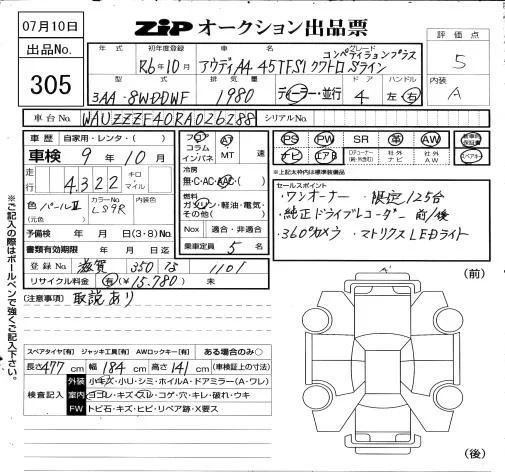 07月10日
出品No.
305
ZIP オークション出品票
評価点
5
内装
A
年式 初年度登録 車名 グレード
R6年10月 アウディA4 45TFSIクワトロ Sライン
コンペティションプラス
型式 排気量 ドア ハンドル
3AA-8WDDWF 1980 ディーラー・並行 4 左 右
車台No. WAUZZZF40RA026288 シリアルNo.
車歴 自家用・レンタ・( )
車検 9年10月
走行 4322 キロ・マイル
色 パールⅡ カラーNo. LS9R 内装色
(元色)
予備検 年 月 日(3・8)No.
書類有効期限 年 月 日迄
登録No. 滋賀 350 な 1101
リサイクル料金 有(¥15,780) 未
フロア AT
コラム
インパネ MT 速
冷房
無・C・AC・AAC( )
燃料
ガソリン・軽油・電気・
その他( )
Nox 適合・非適合
乗車定員 5 名
PS PW SR 革 AW 新車時保証書
ナビ エアB 社外ナビ 社外AW スペアキー
*上記太枠内は標準装備品
セールスポイント
・ワンオーナー ・限定125台
・純正ドライブレコーダー 前/後
・360°カメラ ・マトリクスLEDライト
(注意事項) 取説あり
※ご記入の際はボールペンで強くご記入下さい。
(前)
(後)
スペアタイヤ[有] ジャッキ工具[有] AWロックキー[有] ある場合のみ○
長さ477cm 幅184cm 高さ141cm (車検証上の寸法)
検査記入
外装 小キズ・小U・シミ・ホイルA・ドアミラー(A・ワレ)
室内 ヨゴレ・キズ・スレ・コゲ・穴・キレ・破れ・ウキ
FW トビ石・キズ・ヒビ・リペア跡・X要ス